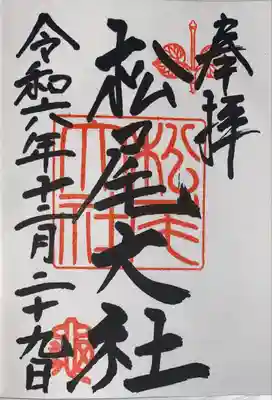 奉拝
松尾大社
令和六年十一月二十九日
松尾大社